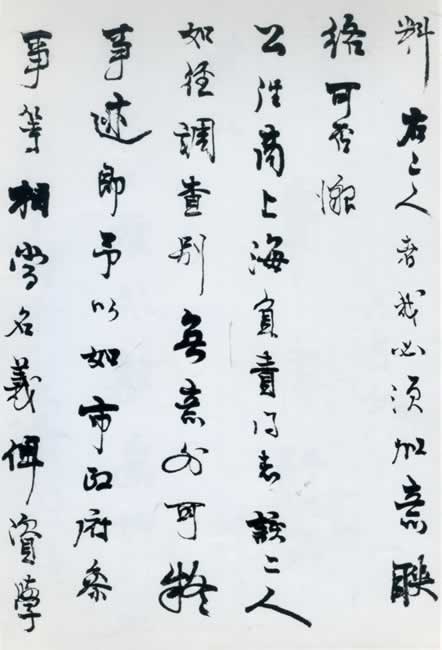 料右二人者我必須加意聯
絡可否
公往商上海負責同志該二人
如經調查別無意外可疑
事迹即予以如市政府參
事等相當名義俾資學